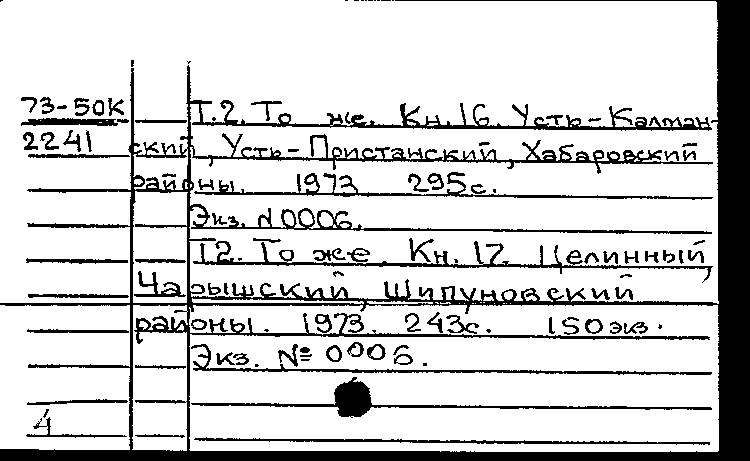 73-50К Т.2. То же. Кн. 16. Усть-Калман-
2241 ский, Усть-Пристанский, Хабаровский
районы. 1973 295с.
Экз. N0006.
Т2. То же. Кн. 17. Целинный,
Чарышский, Шипуновский
районы. 1973. 243с. 150 экз.
Экз. № 0006.
4